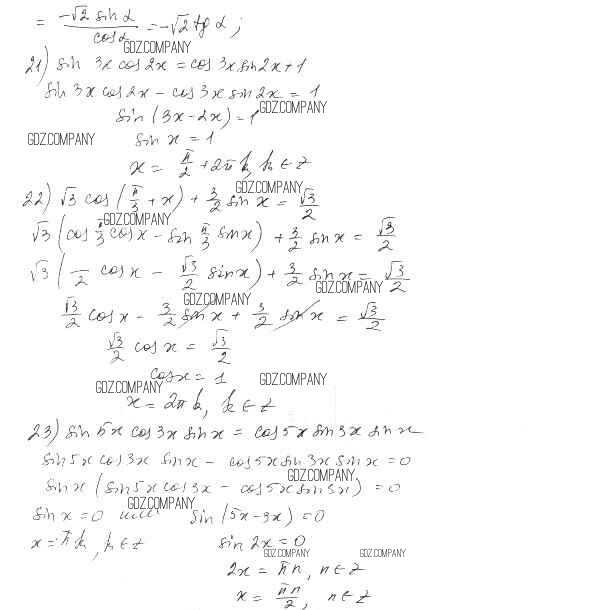 = -√2 sin α / cos α = -√2 tg α ;
GDZ.COMPANY
21) sin 3x cos 2x = cos 3x sin 2x + 1
sin 3x cos 2x - cos 3x sin 2x = 1
sin (3x - 2x) = 1
GDZ.COMPANY
GDZ.COMPANY
sin x = 1
x = π/2 + 2πk, k ∈ Z
GDZ.COMPANY
22) √3 cos (π/3 + x) + 3/2 sin x = √3/2
GDZ.COMPANY
√3 (cos π/3 cos x - sin π/3 sin x) + 3/2 sin x = √3/2
√3 ( /2 cos x - √3/2 sin x) + 3/2 sin x = √3/2
GDZ.COMPANY
GDZ.COMPANY
√3/2 cos x - 3/2 sin x + 3/2 sin x = √3/2
√3/2 cos x = √3/2
cos x = 1
GDZ.COMPANY GDZ.COMPANY
x = 2πk, k ∈ Z
23) sin 5x cos 3x sin x = cos 5x sin 3x sin x
sin 5x cos 3x sin x - cos 5x sin 3x sin x = 0
GDZ.COMPANY
sin x (sin 5x cos 3x - cos 5x sin 3x) = 0
GDZ.COMPANY
sin x = 0 или sin (5x - 3x) = 0
x = πk, k ∈ Z sin 2x = 0
GDZ.COMPANY GDZ.COMPANY
2x = πn, n ∈ Z
x = πn/2, n ∈ Z